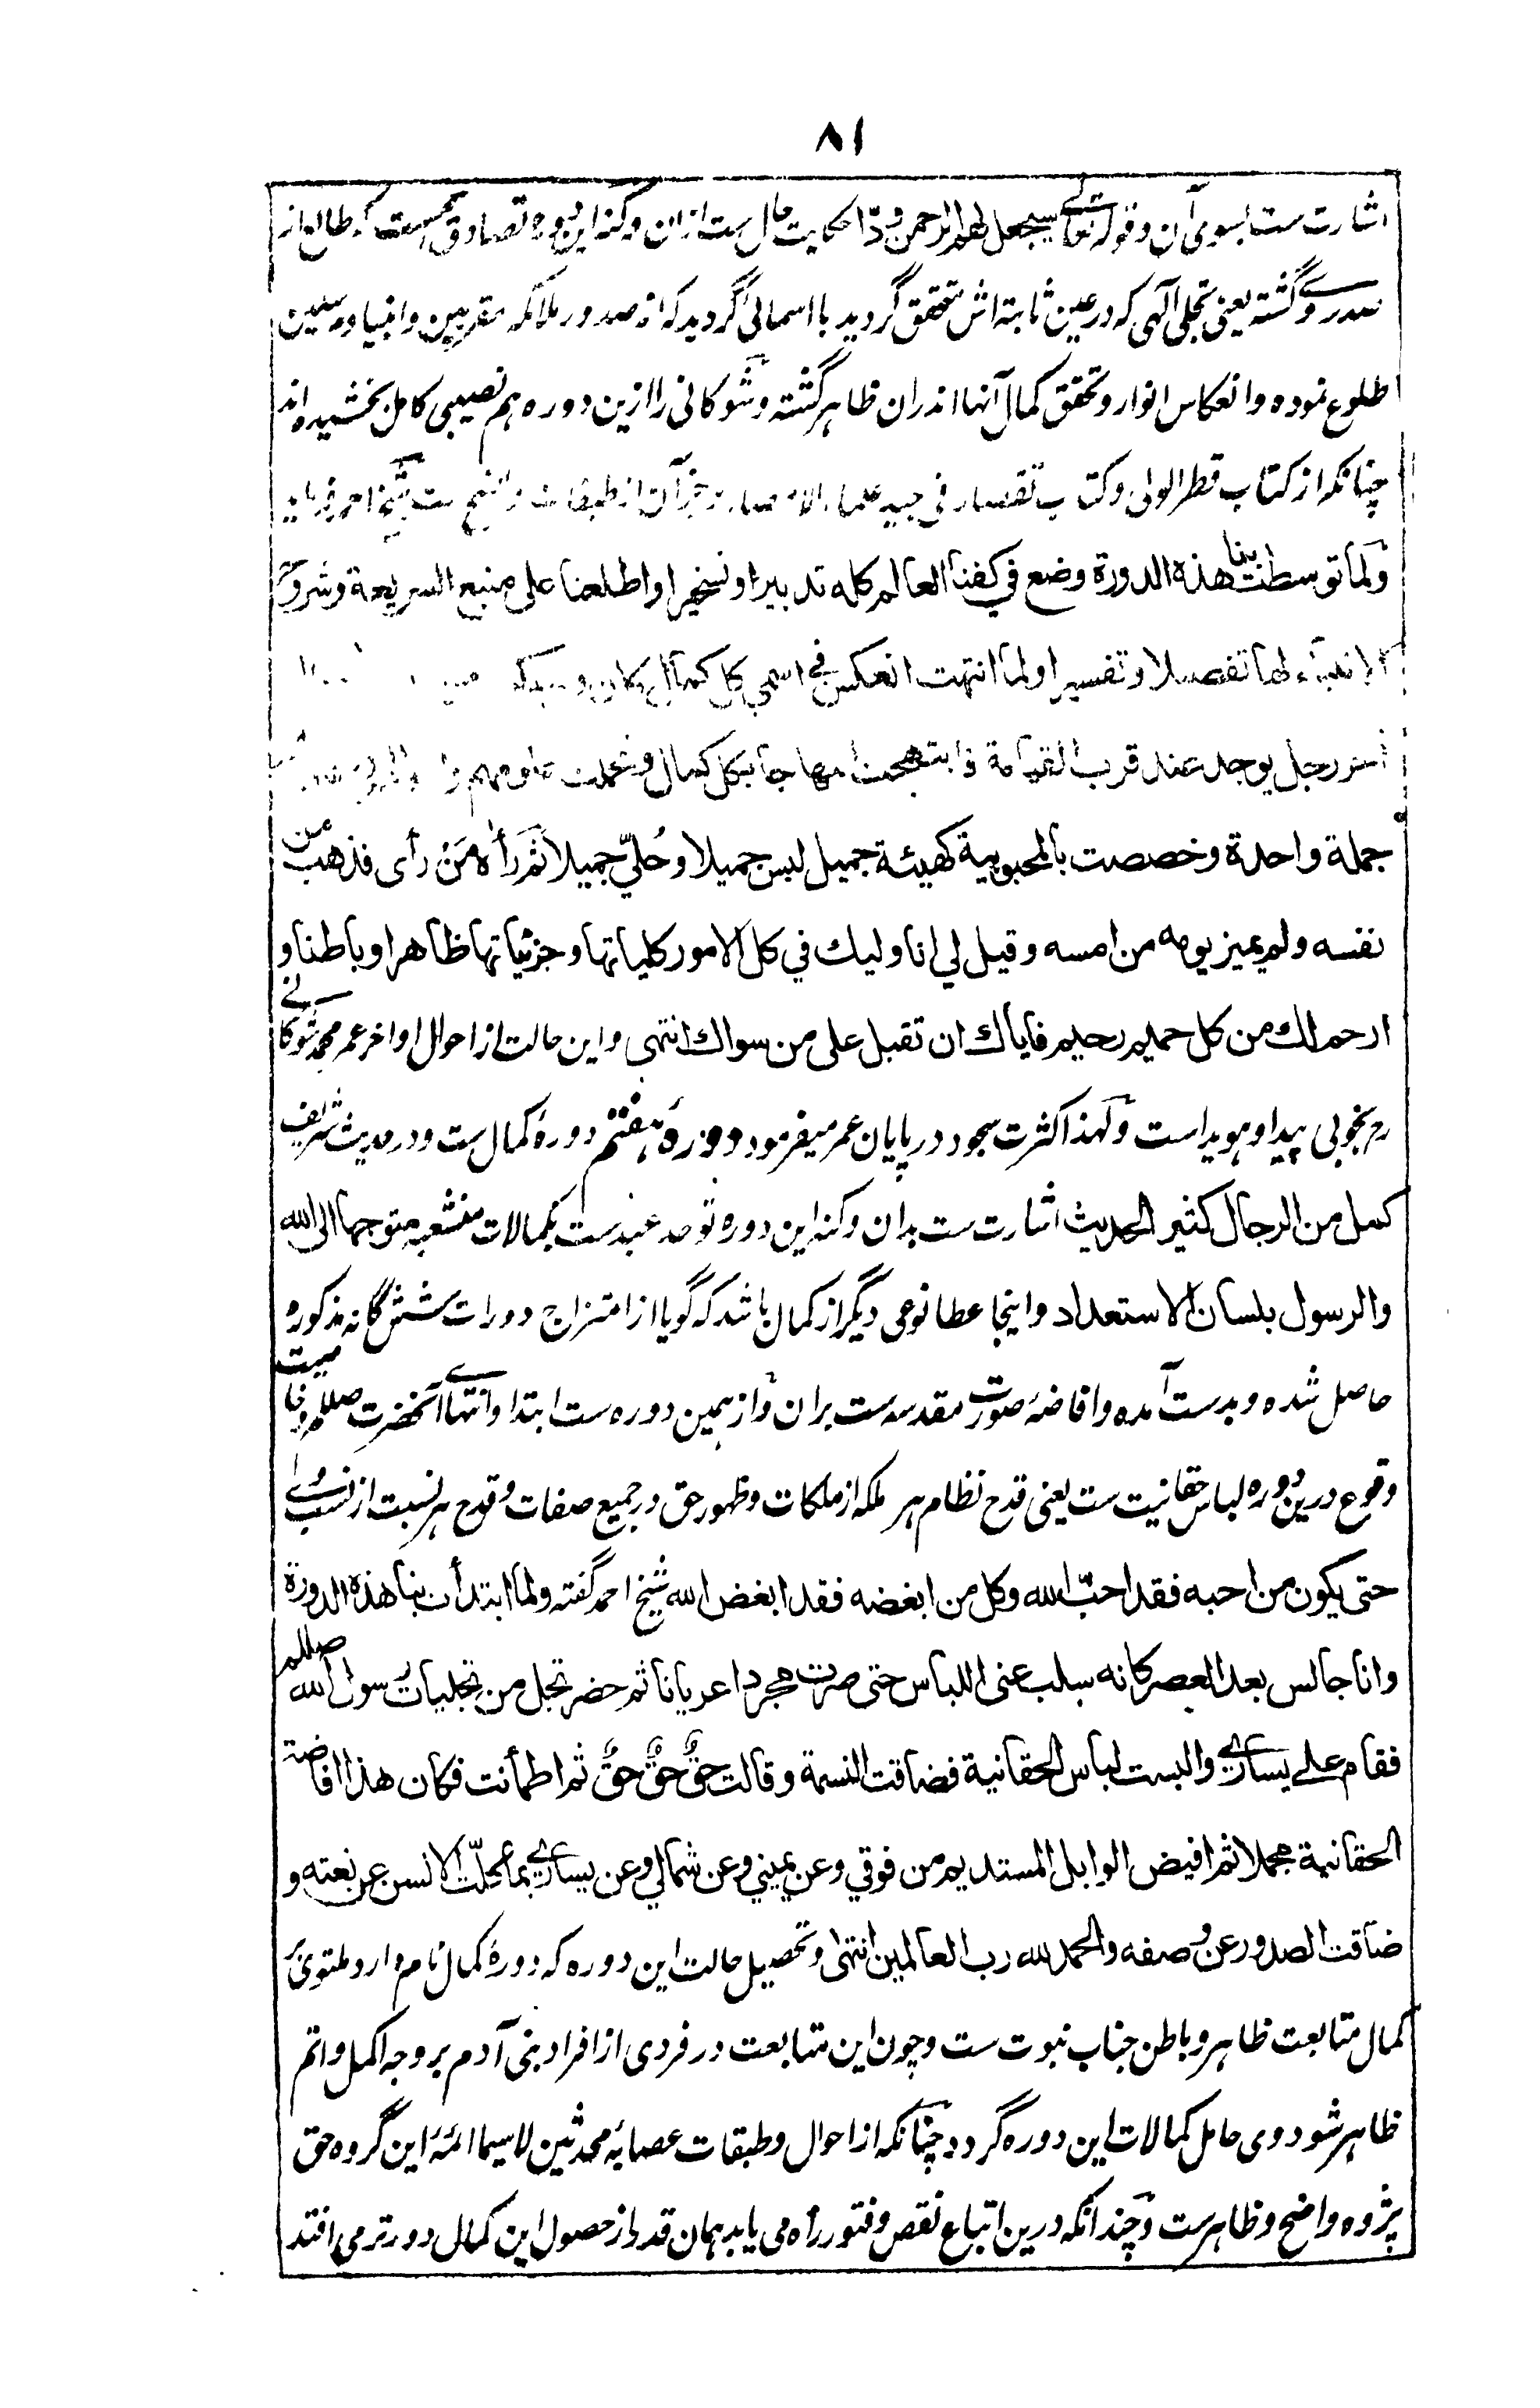 ٨١
اشارت ست بسوی آن وقوله تعالی سیجعل لهم الرحمن ودّا حکایت حال ست ازان وکنه این دوره تصادق طالع از
گشته یعنی تجلی آلهی که در عین ثابته اش متحقق گردید با اسمائی گردید که از صدور ملائکه مقربین وانبیا ومرسلین
طلوع نموده وانعکاس انوار وتحقق کمال آنها اندران ظاهر گشته وشوکانی را ازین دوره هم نصیبی کامل بخشیده اند
چنانکه از کتاب قطر الولی وکتاب تقصار فی جید علماء الامصار وجز آن از طبقات واضح ست شیخ احمد
ولما توسطت بنا هذه الدورة وضع في كفنا العالم كله تدبيرا وتسخيرا واطلعنا على منبع الشريعة وشروح
الانبياء لها تفصيلا وتفسيرا ولما انتهت انعكس في اسمي كل كمال كان
رجل يوجد عند قرب القيامة فابتهجت مهاجا بكل كمال وعملت علومهم
جملة واحدة وخصصت بالمحبوبية كهيئة جميل لبس جميلا وحُلّي جميلا ثم رأه مَن رأى فذهب عن
نفسه ولم يميز يومه من امسه وقيل لي انا وليك في كل الامور كلياتها وجزئياتها ظاهرا وباطنا و
ارحم لك من كل حميم رحيم فاياك ان تقبل على من سواك انتهى واین حالت از احوال اواخر عمر محمد شوکانی
رح بخوبی پیدا وهویداست ولهذا کثرت سجود در پایان عمر میفرمود دورهٔ هفتم دورهٔ کمال ست ودر حدیث شریف
كمل من الرجال كثير الحديث اشارت ست بدان وکنه این دوره توحد عبدست بکمالات منشعبه متوجها الى الله
والرسول بلسان الاستعداد واینجا عطا نوعی دیگر از کمال باشد که گویا از امتزاج دورات شش گانه مذکوره
حاصل شده وبدست آمده وافاضهٔ صورت مقدسه ست بران واز همین دوره ست ابتدا وانتهای آنحضرت صللم وخاصیت
وقوع درین دوره لباس حقانیت ست یعنی قدح نظام هر ملکه از ملکات وظهور حق در جمیع صفات وقدح هر نسبت از نسب وی
حتى يكون من احبه فقد احبّ الله وكل من ابغضه فقد ابغض الله شیخ احمد گفته ولما ابتدأت بنا هذه الدورة
وانا جالس بعد العصر كانه سلب عني اللباس حتى صرت مجردا عريانا ثم حضر تجل من تجليات رسول الله صللم
فقام على يساري والبست لباس الحقانية فضاقت النسمة وقالت حقٌّ حقٌّ حقٌّ ثم اطمأنت فكان هذا افاضة
الحقانية مجملا ثم افيض الوابل المستديم من فوقي وعن يميني وعن شمالي وعن يساري بما كلّت الالسن عن نعته و
ضاقت الصدور عن وصفه والحمد لله رب العالمين انتهى وتحصیل حالت این دوره که دورهٔ کمال نام دارد منوی
کمال متابعت ظاهر وباطن جناب نبوت ست وچون این متابعت در فردی از افراد بنی آدم بر وجه اکمل واتم
ظاهر شود وی حامل کمالات این دوره گردد چنانکه از احوال وطبقات عصابهٔ محدثین لاسیما ائمهٔ این گروه حق
پژوه واضح وظاهرست وچندانکه درین اتباع نقص وفتور راه می یابد همان قدر از حصول این کمال دورتر می افتد